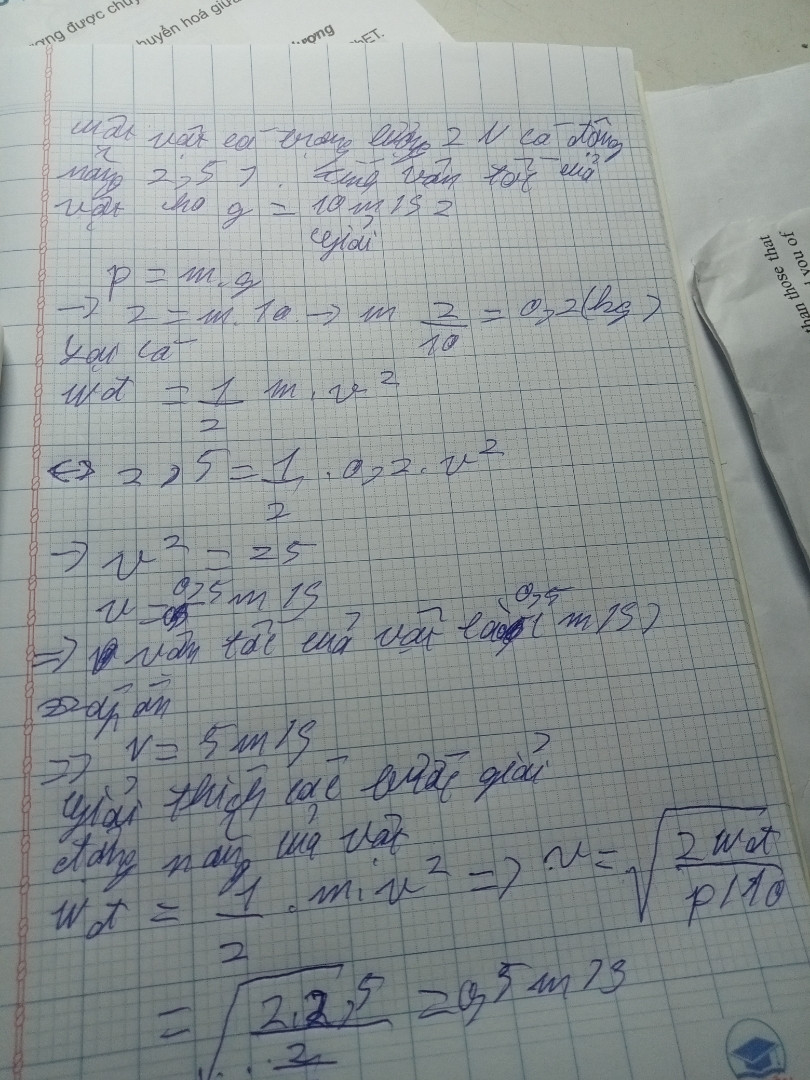 ợng được chuy
huyển hoá giữa
ượng
than those that
l you of
một vật có trọng lượng 2 N có động
năng 2,5 J. tính vận tốc của
vật cho g = 10 m/s2
Giải
p = m.g
→ 2 = m.10 → m 2/10 = 0,2(kg)
Lại có
Wđ = 1/2 m.v²
<=> 2,5 = 1/2 . 0,2 . v²
→ v² = 25
v = 0,5 m/s
=> vận tốc của vật là 0,5 m/s)
đáp án
=> v = 5 m/s
Giải thích các bước giải
động năng của vật
Wđ = 1/2 . m.v² => v = √(2Wđ/p/10)
= √(2.2,5/2 = 0,5 m/s